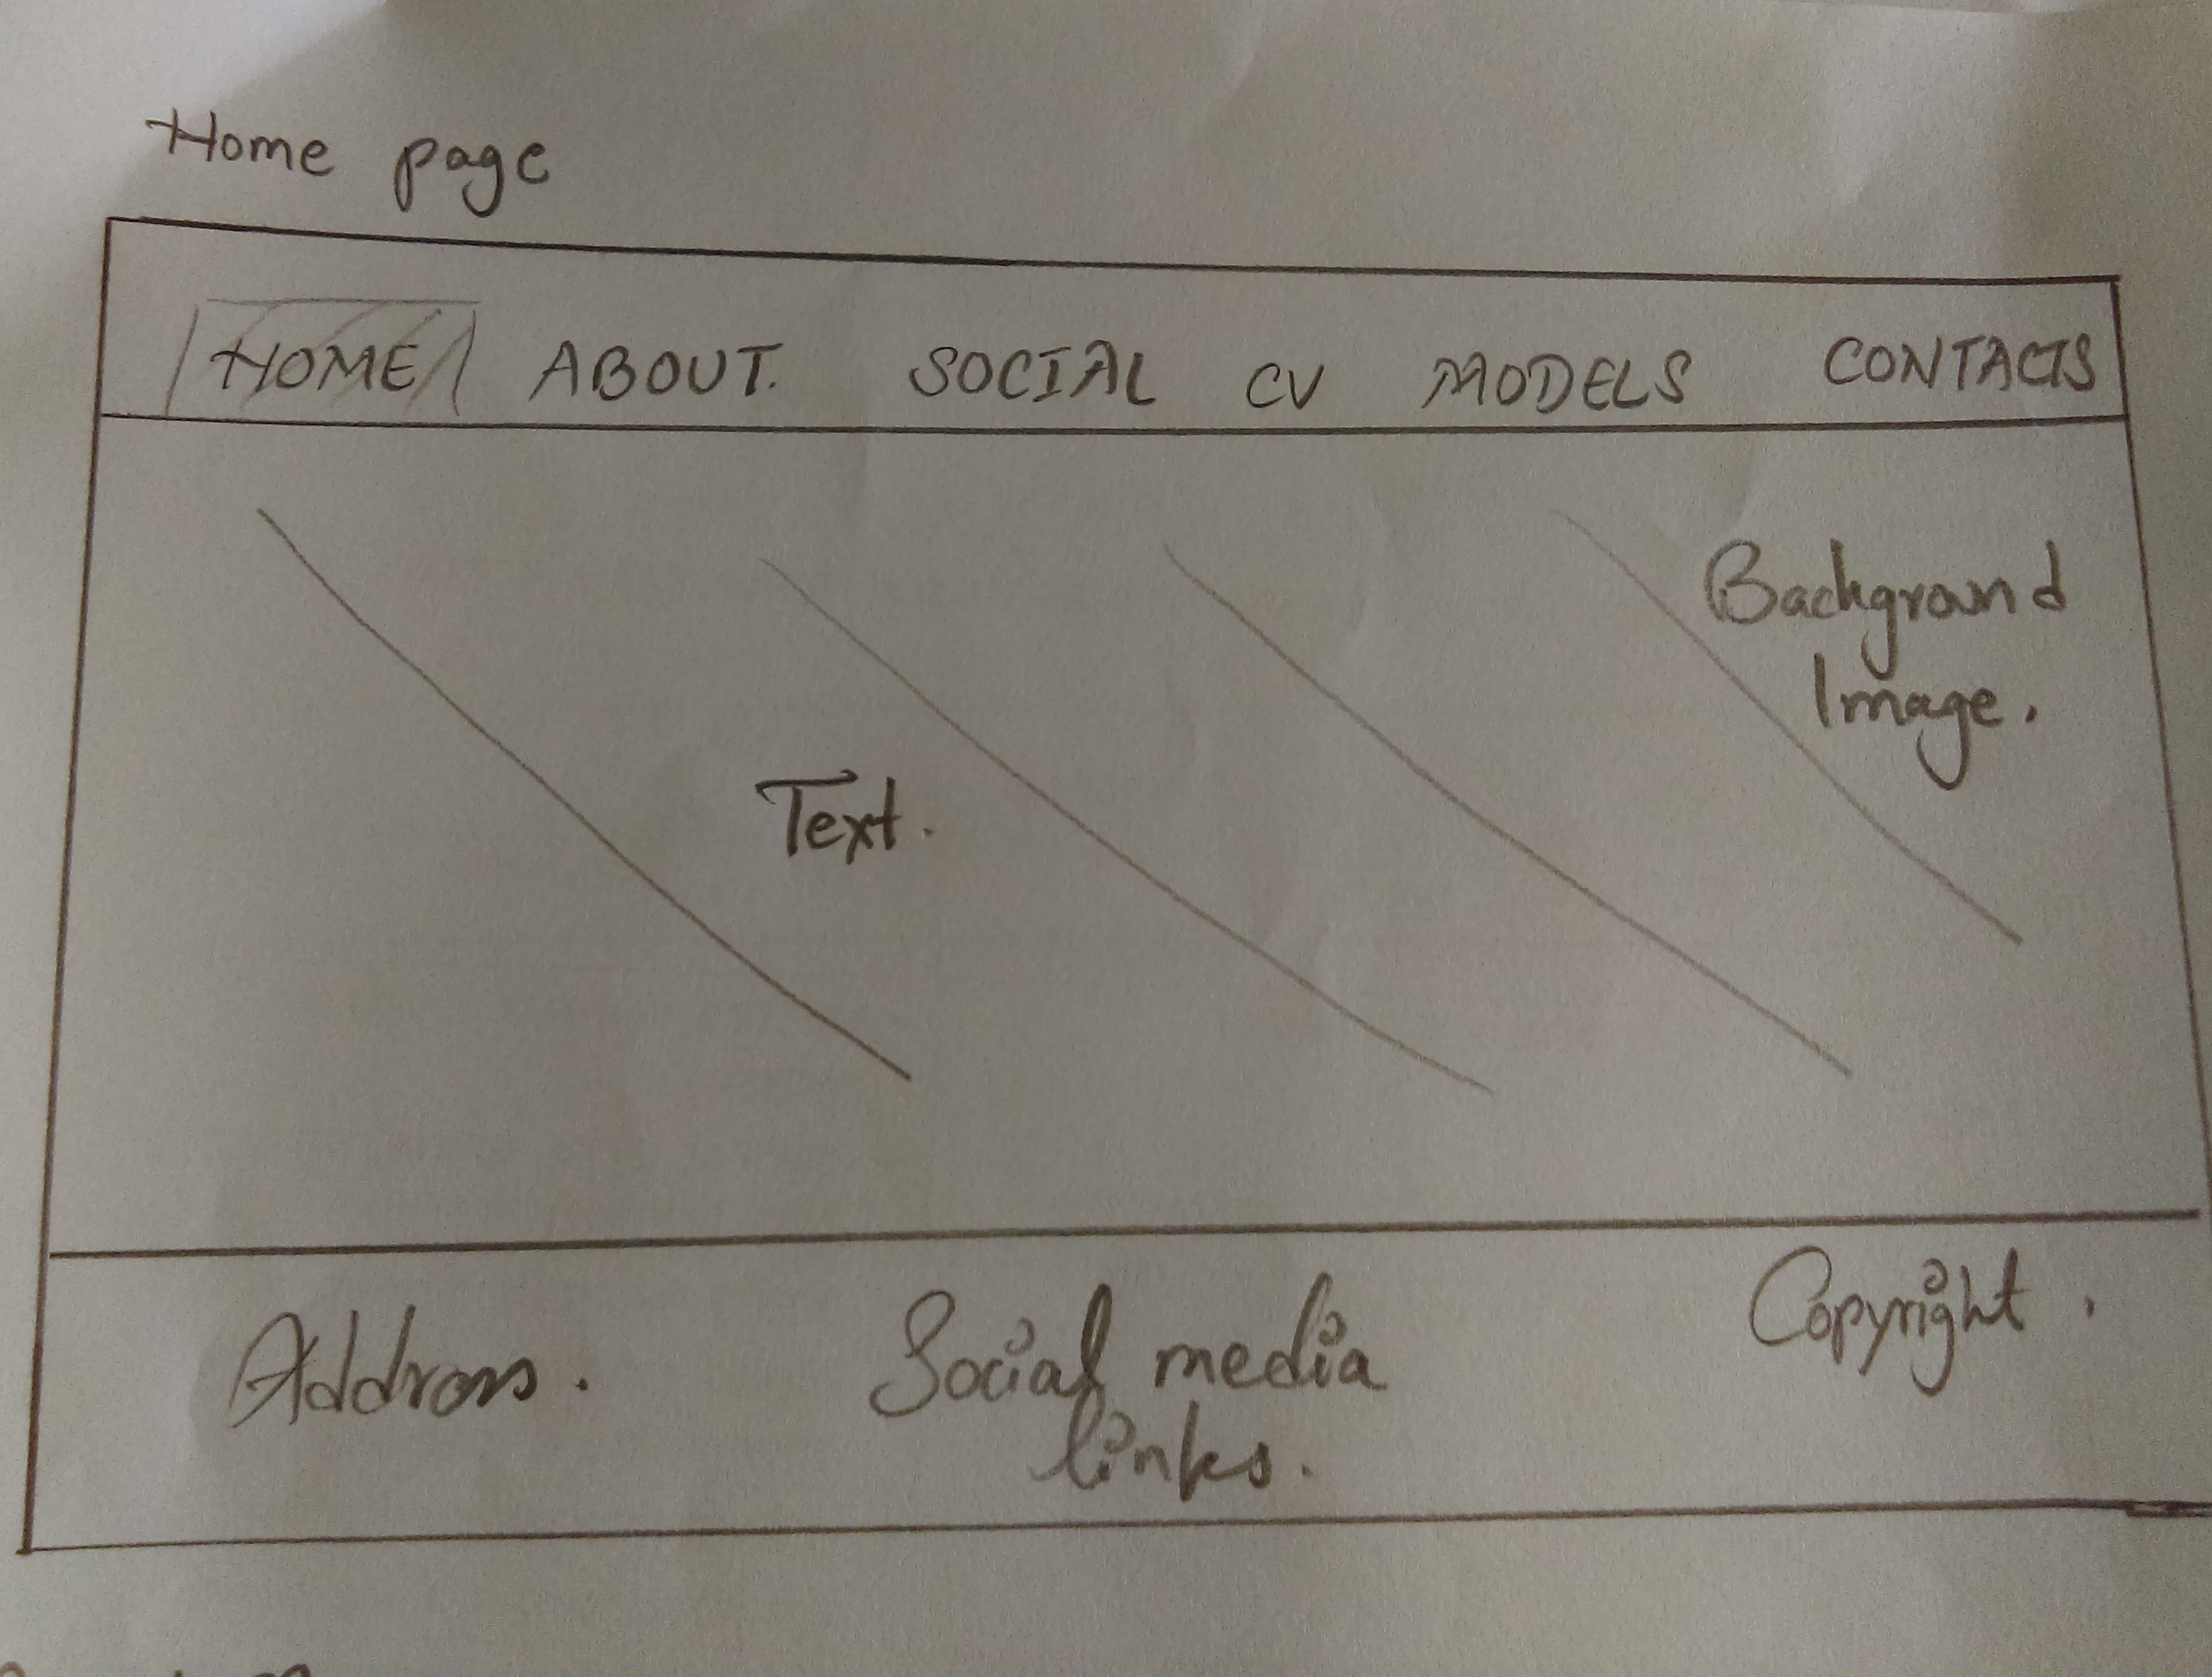 Home page
HOME ABOUT. SOCIAL CV MODELS CONTACTS
Background
Image.
Text.
Address. Social media Copyright.
links.